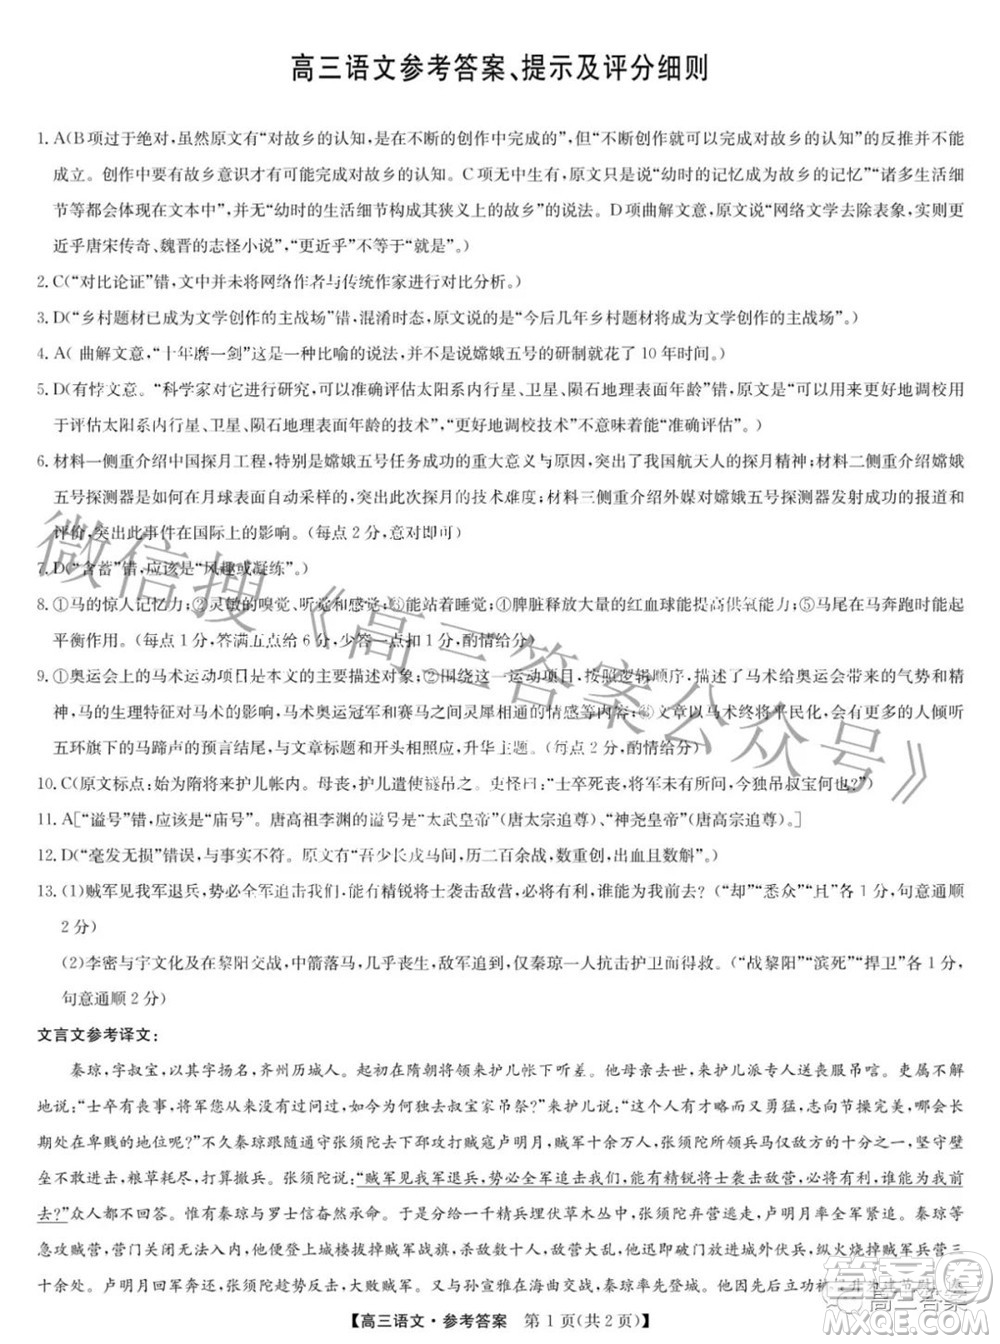 高三语文参考答案、提示及评分细则
1. A(B项过于绝对,虽然原文有“对故乡的认知,是在不断的创作中完成的”,但“不断创作就可以完成对故乡的认知”的反推并不能
成立。创作中要有故乡意识才有可能完成对故乡的认知。C项无中生有,原文只说“幼时的记忆成为故乡的记忆”“诸多生活细
节等都会体现在文本中”,并无“幼时的生活细节构成其狭义上的故乡”的说法。D项曲解文意,原文说“网络文学去除表象,实则更
近乎唐宋传奇、魏晋的志怪小说”,“更近乎”不等于“就是”。)
2. C(“对比论证”错,文中并未将网络作者与传统作家进行对比分析。)
3. D(“乡村题材已成为文学创作的主战场”错,混淆时态,原文说的是“今后几年乡村题材将成为文学创作的主战场”。)
4. A( 曲解文意,“十年磨一剑”这是一种比喻的说法,并不是说嫦娥五号的研制就花了 10 年时间。)
5. D(有悖文意。“科学家对它进行研究,可以准确评估太阳系内行星、卫星、陨石地理表面年龄”错,原文是“可以更好地调校用
于评估太阳系内行星、卫星、陨石地理表面年龄的年代学系统”,“更好地调校”不意味着能“准确评估”。)
6. 材料一侧重介绍中国探月工程,特别是嫦娥五号任务成功的重大意义,突出了我国航天人的探月精神;材料二侧重介绍嫦娥
五号探测器是如何在月球表面自动采样的,突出此次探月的技术难度;材料三侧重介绍外媒对嫦娥五号探测器发射成功的报道和
评价,突出此事件在国际上的影响。(每点 2 分,意对即可)
7. D(“含蓄”错,应该是“风趣或凝练”。)
8. ①马的惊人记忆力;②灵敏的嗅觉、听觉;③能站着睡觉;④脾脏释放大量的红血球能提高供氧能力;⑤马尾在马奔跑时能起
平衡作用。(每点 1 分,答满五点给 6 分,少答一点扣 1 分,酌情给分)
9. ①奥运会的马术运动项目是本文的主要描述对象;②围绕这一运动项目,按照逻辑顺序,描写了马术给奥运带来的气势和精
神,马的生理特征对马术的影响,马术奥运冠军和赛马之间灵犀相通的情感等内容;③文章以马术终将平民化,会有更多的人倾听
五环旗下的马蹄声的预言结尾,与文章标题和开头相照应,升华主题。(每点 2 分,酌情给分)
10. C(原文标点:始为隋将来护儿帐内。母丧,护儿遣使襚吊之。吏怪曰:“士卒死丧,将军未有所问,今独吊叔宝何也?”)
11. A[“谥号”错,应该是“庙号”。唐高祖李渊的谥号是“太武皇帝”(唐太宗追尊)、“神尧皇帝”(唐高宗追尊)。]
12. D(“毫发无损”错误,与事实不符。原文有“吾少长戎马间,历二百余战,数重创,出血且数斛”。)
13. (1)贼军见我军退兵,势必全军追击我们,能有精锐将士袭击敌营,必将有利,谁能为我前去?(“却”“悉众”“且”各 1 分,句意通顺
2 分)
(2)李密与宇文化及在黎阳交战,中箭落马,几乎丧生,敌军追到,仅秦琼一人抗击护卫而得免。(“战黎阳”“濒死”“捍卫”各 1 分,
句意通顺 2 分)
文言文参考译文：
秦琼,字叔宝,以其字显名,齐州历城人。起初在隋朝将领来护儿帐下听差。他母亲去世,来护儿派人送丧服吊唁。吏属奇怪
地说:“士卒有丧事,将军您从来没有过问过,今天为何独去叔宝家吊祭?”来护儿说:“这个人有才而又勇猛,志向节操完美,必不会长
期处在卑贱的地位呢?”不久秦琼跟随通守张须陀去下邳攻打贼寇卢明月,贼军十余万人,张须陀所领兵马仅为敌方的十分之一,坚守壁
垒,不敢进击,粮草耗尽,打算撤兵。张须陀说:“贼军见我军退兵,势必全军追击我们,能有精锐将士袭击敌营,必将有利,谁能为我前
去?”众人都不回答。惟有秦琼与罗士信奋然承命。于是分给一千精兵埋伏草木丛中,张须陀弃营逃走,卢明月率全军紧追。秦琼等
急攻贼营,营门关闭无法入内,二人于是登上城楼拔掉贼军战旗,杀敌数十人,敌营大乱,随即砍断营门放进城外伏兵,纵火烧掉贼军营三
十余处。卢明月回军奔救,张须陀奋兵回击,大败贼军。又与孙宣雅在海曲交战,秦琼率先登城。
高三语文·参考答案 第 1 页(共 2 页)
微信搜《高三答案公众号》